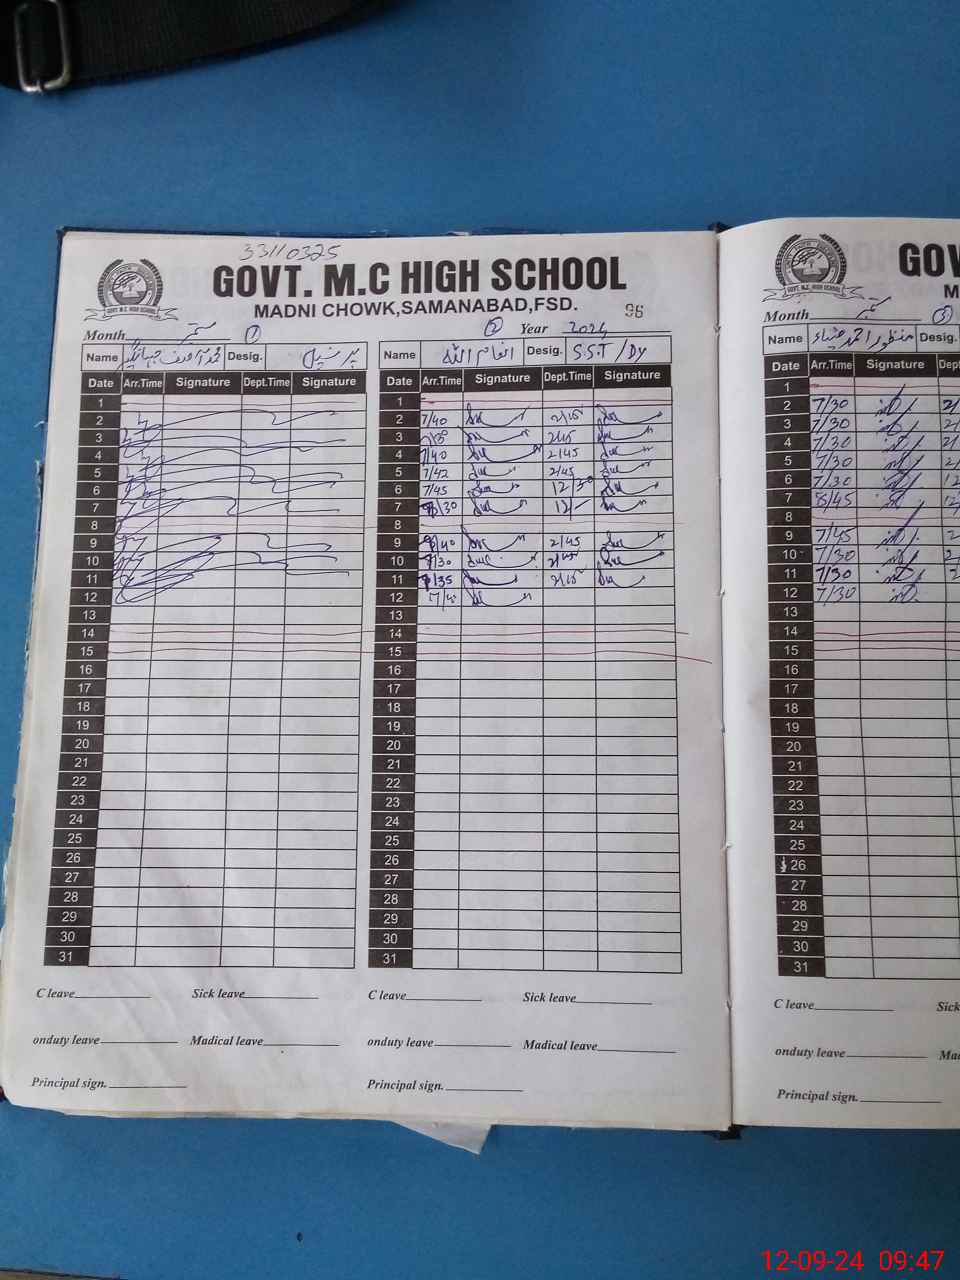 33110325
GOVT. M.C HIGH SCHOOL
MADNI CHOWK,SAMANABAD,FSD.
96
GOVT. M.C HIGH SCHOOL
Month ستمبر ① ② Year 2024
Name Desig. پرنسپل
Date Arr.Time Signature Dept.Time Signature
1
2
3
4
5
6
7
8
9
10
11
12
13
14
15
16
17
18
19
20
21
22
23
24
25
26
27
28
29
30
31
C leave Sick leave
onduty leave Madical leave
Principal sign.
Name انعام اللہ Desig. S.S.T /Dy
Date Arr.Time Signature Dept.Time Signature
1
2 7/40 2/45
3 2/45
4 7/40 2/45
5 7/42 2/45
6 7/45 12/30
7 8/30 12/-
8
9 2/45
10 7/30 2/45
11 7/35 2/45
12
13
14
15
16
17
18
19
20
21
22
23
24
25
26
27
28
29
30
31
C leave Sick leave
onduty leave Madical leave
Principal sign.
GOV
M
GOVT. M.C HIGH SCHOOL
Month ستمبر ③
Name منظور احمد ضیاء Desig.
Date Arr.Time Signature Dept
1
2 7/30
3 7/30
4 7/30
5 7/30
6 7/30
7 8/45
8
9 7/45
10 7/30
11 7/30
12 7/30
13
14
15
16
17
18
19
20
21
22
23
24
25
26
27
28
29
30
31
C leave Sick
onduty leave Mad
Principal sign.
12-09-24 09:47